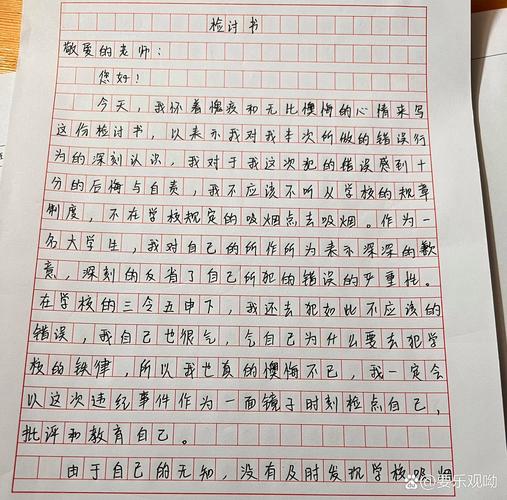 检讨书
敬爱的老师：
您好！
今天，我怀着愧疚和无比懊悔的心情来写
这份检讨书，以表示我对我本次所做的错误行
为的深刻认识，我对于我这次犯的错误感到十
分的后悔与自责，我不应该不听从学校的规章
制度，不在学校规定的吸烟点去吸烟。作为一
名大学生，我对自己的所作所为表示深深的歉
意，深刻的反省了自己所犯的错误的严重性。
在学校的三令五申下，我还去犯如此不应该的
错误，我自己也很气，气自己为什么要去犯学
校的铁律，所以我也真的懊悔不已，我一定会
以这次违纪事件作为一面镜子时刻检点自己，
批评和教育自己。
由于自己的无知，没有及时发现学校吸烟
Baidu百科@要乐观呦